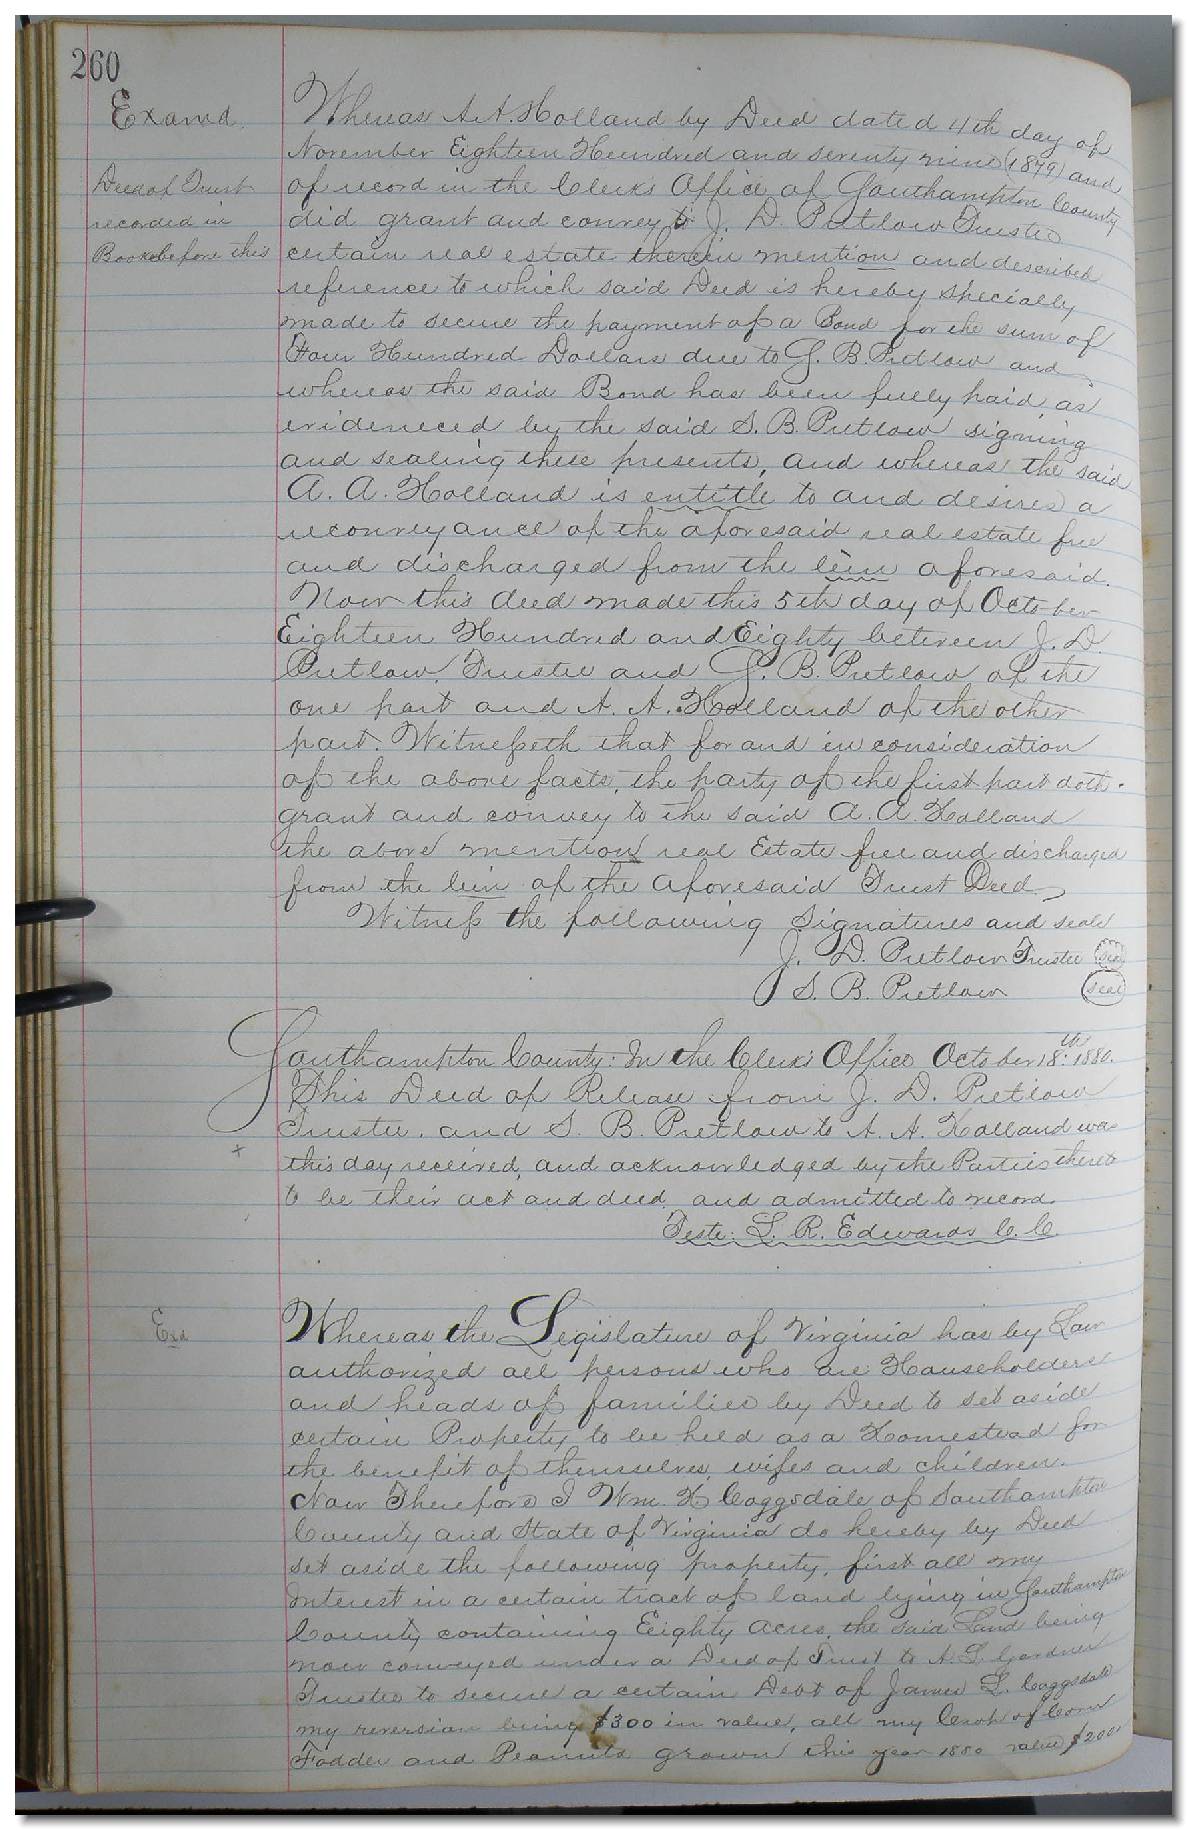 260
Examd
Deed of Trust
recorded in
Book before this
Whereas A. A. Holland by Deed dated 4th day of
November Eighteen Hundred and seventy nine (1879) and
of record in the Clerks Office of Southampton County
did grant and convey to J. D. Pretlow Trustee
certain real estate therein mention and described
reference to which said Deed is hereby specially
made to secure the payment of a Bond for the sum of
Four Hundred Dollars due to S. B. Pretlow and
whereas the said Bond has been fully paid, as
evidenced by the said S. B. Pretlow signing
and sealing these presents, and whereas the said
A. A. Holland is entitle to and desires a
reconveyance of the aforesaid real estate free
and discharged from the lein aforesaid.
Now this deed made this 5th day of October
Eighteen Hundred and Eighty between J. D.
Pretlow, Trustee and S. B. Pretlow of the
one part and A. A. Holland of the other
part. Witnesseth that for and in consideration
of the above facts, the party of the first part doth
grant and convey to the said A. A. Holland
the above mention real Estate free and discharged
from the lein of the aforesaid Trust Deed
Witness the following Signatures and seals
J. D. Pretlow Trustee seal
S. B. Pretlow seal
Southampton County: In the Clerks Office October 18th 1880.
This Deed of Release from J. D. Pretlow
Trustee, and S. B. Pretlow to A. A. Holland was
this day received, and acknowledged by the Parties thereto
to be their act and deed, and admitted to record
Teste: L. R. Edwards C. C.
Exd
Whereas the Legislature of Virginia has by Law
authorized all persons who are Householders
and heads of families by Deed to set aside
certain Property to be held as a Homestead for
the benefit of themselves, wifes and children.
Now Therefore I Wm. H. Coggsdale of Southampton
County and State of Virginia do hereby by Deed
set aside the following property, first all my
Interest in a certain tract of land lying in Southampton
County containing Eighty Acres, the said Land being
now conveyed under a Deed of Trust to A. L. Gardner
Trustee to secure a certain Debt of James L. Coggsdale
my reversion being $300 in value, all my Crop of Corn
Fodder and Peanuts grown this year 1880 value $200